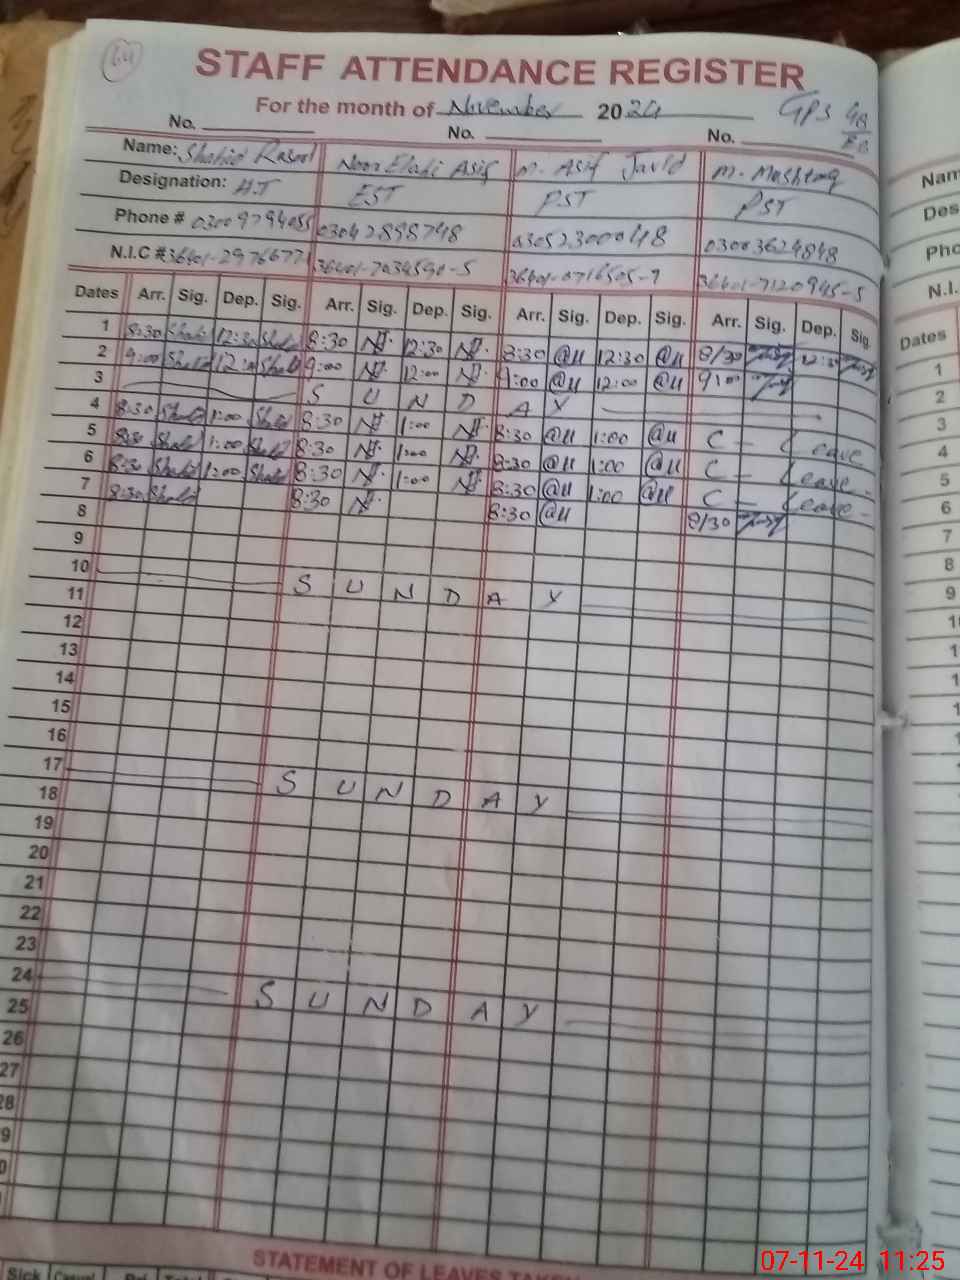 64
STAFF ATTENDANCE REGISTER
For the month of November 2024 GPS 48/EB
No. No. No.
Name: Shahid Rasool Noor Elahi Asif M. Asif Javid M. Mushtaq
Designation: H.T EST PST PST
Phone # 03009794055 03042898748 03052300048 03003624848
N.I.C # 36401-2976677 36401-7034590-5 36401-0716505-9 36401-7120945-5
Dates Arr. Sig. Dep. Sig. Arr. Sig. Dep. Sig. Arr. Sig. Dep. Sig. Arr. Sig. Dep. Sig.
1 8:30 Shahid 12:30 Shahid 8:30 12:30 8:30 12:30 8/30 12:30
2 9:00 Shahid 12:00 Shahid 9:00 12:00 9:00 12:00 9:00
3 S U N D A Y
4 8:30 Shahid 1:00 Shahid 8:30 1:00 8:30 1:00 C - Leave
5 8:30 Shahid 1:00 Shahid 8:30 1:00 8:30 1:00 C - Leave
6 8:30 Shahid 1:00 Shahid 8:30 1:00 8:30 1:00 C - Leave
7 8:30 Shahid 8:30 8:30 8/30
8
9
10 S U N D A Y
11
12
13
14
15
16
17 S U N D A Y
18
19
20
21
22
23
24 S U N D A Y
25
26
27
28
9
0
STATEMENT OF LEAVES TAKEN
Sick Casual
Nam
Des
Pho
N.I.
Dates
1
2
3
4
5
6
7
8
9
07-11-24 11:25